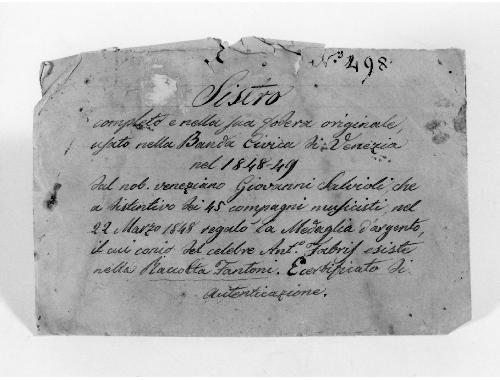 N.º 498
Sistro
completo e nella sua fodera originale,
usato nella Banda Civica di Venezia
nel 1848-49
dal nob. veneziano Giovanni Salvioli, che
a distintivo dei 45 compagni musicisti, nel
22 Marzo 1848 regalò la Medaglia d'argento,
il cui conio del celebre Ant.º Fabris esiste
nella Raccolta Fantoni. E certificato di
autenticazione.